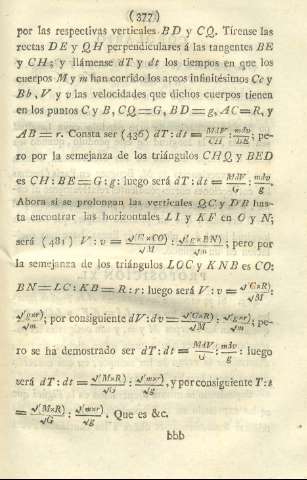 (377)
por las respectivas verticales BD y CQ. Tírense las
rectas DE y QH perpendiculares á las tangentes BE
y CH; y llámense dT y dt los tiempos en que los
cuerpos M y m han corrido los arcos infinitésimos Cc y
Bb, V y v las velocidades que dichos cuerpos tienen
en los puntos C y B, CQ=G, BD=g, AC=R, y
AB = r. Consta ser (436) dT : dt = MdV/CH : mdv/BE; pe-
ro por la semejanza de los triángulos CHQ y BED
es CH : BE = G : g : luego será dT : dt = MdV/G : mdv/g.
Ahora si se prolongan las verticales QC y DB has-
ta encontrar las horizontales LI y KF en O y N;
será (481) V : v = √(G×CO)/√M : √(g×BN)/√m; pero por
la semejanza de los triángulos LOC y KNB es CO:
BN=LC : KB=R : r : luego será V : v = √(G×R)/√M :
√(g×r)/√m; por consiguiente dV : dv = √(G×R)/√M : √(g×r)/√m; pe-
ro se ha demostrado ser dT : dt = MdV/G : mdv/g : luego
será dT : dt = √(M×R)/√G : √(m×r)/√g, y por consiguiente T : t
= √(M×R)/√G : √(m×r)/√g. Que es &c.
bbb